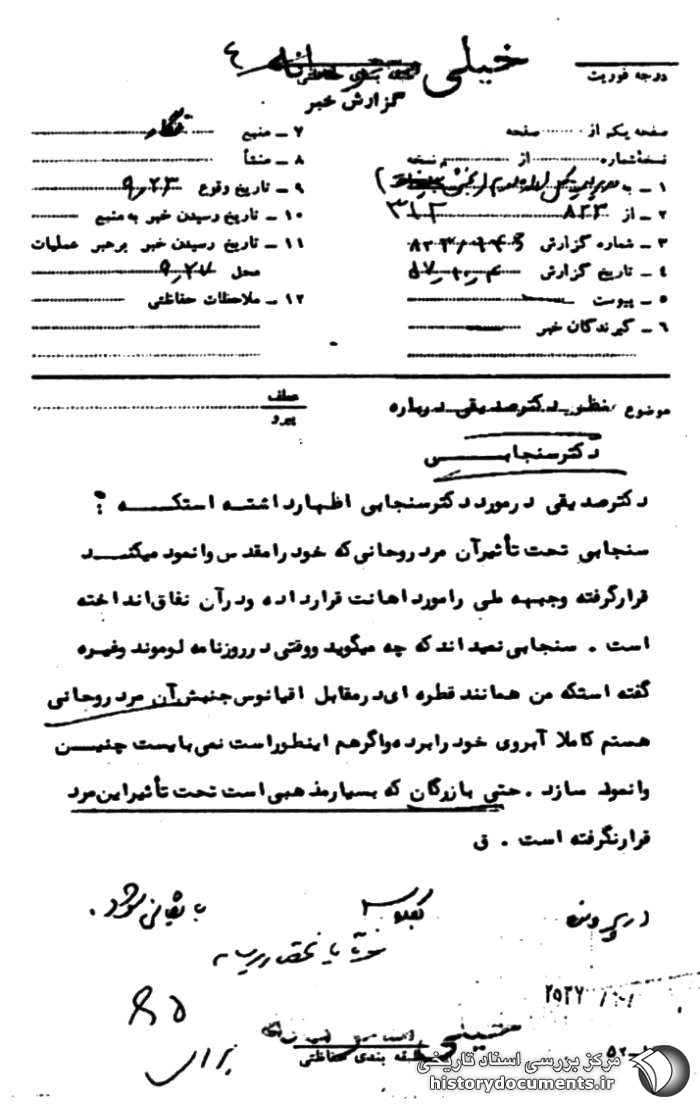 خیلی محرمانه
طبقه بندی حفاظتی
درجه فوریت
گزارش خبر
صفحه یکم از صفحه
نسخهٔ شماره از نسخه
۱ ـ به
۲ ـ از ۸۲۳ ۳۱۲
۳ ـ شماره گزارش
۴ ـ تاریخ گزارش
۵ ـ پیوست
۶ ـ گیرندگان خبر
۷ ـ منبع
۸ ـ منشأ
۹ ـ تاریخ وقوع ۹٫۲۳
۱۰ ـ تاریخ رسیدن خبر به منبع
۱۱ ـ تاریخ رسیدن خبر به رهبر عملیات
محل ۹٫۲۷
۱۲ ـ ملاحظات حفاظتی
موضوع نظر دکتر صدیقی درباره
دکتر سنجابی
عطف
پیرو
دکتر صدیقی در مورد دکتر سنجابی اظهار داشته استکه :
سنجابی تحت تأثیر آن مرد روحانی که خود را مقدس وانمود میکند
قرار گرفته و جبهه ملی را مورد اهانت قرار داده و در آن نفاق انداخته
است . سنجابی نمیداند که چه میگوید و وقتی در روزنامه لوموند و غیره
گفته استکه من همانند قطره ای در مقابل اقیانوس جنبش آن مرد روحانی
هستم کاملا آبروی خود را برده و اگر هم اینطور است نمی بایست چنین
وانمود سازد . حتی بازرگان که بسیار مذهبی است تحت تأثیر این مرد
قرار نگرفته است . ق
در پرونده
بایگانی شود .
خیلی
طبقه بندی حفاظتی
مرکز بررسی اسناد تاریخی
historydocuments.ir